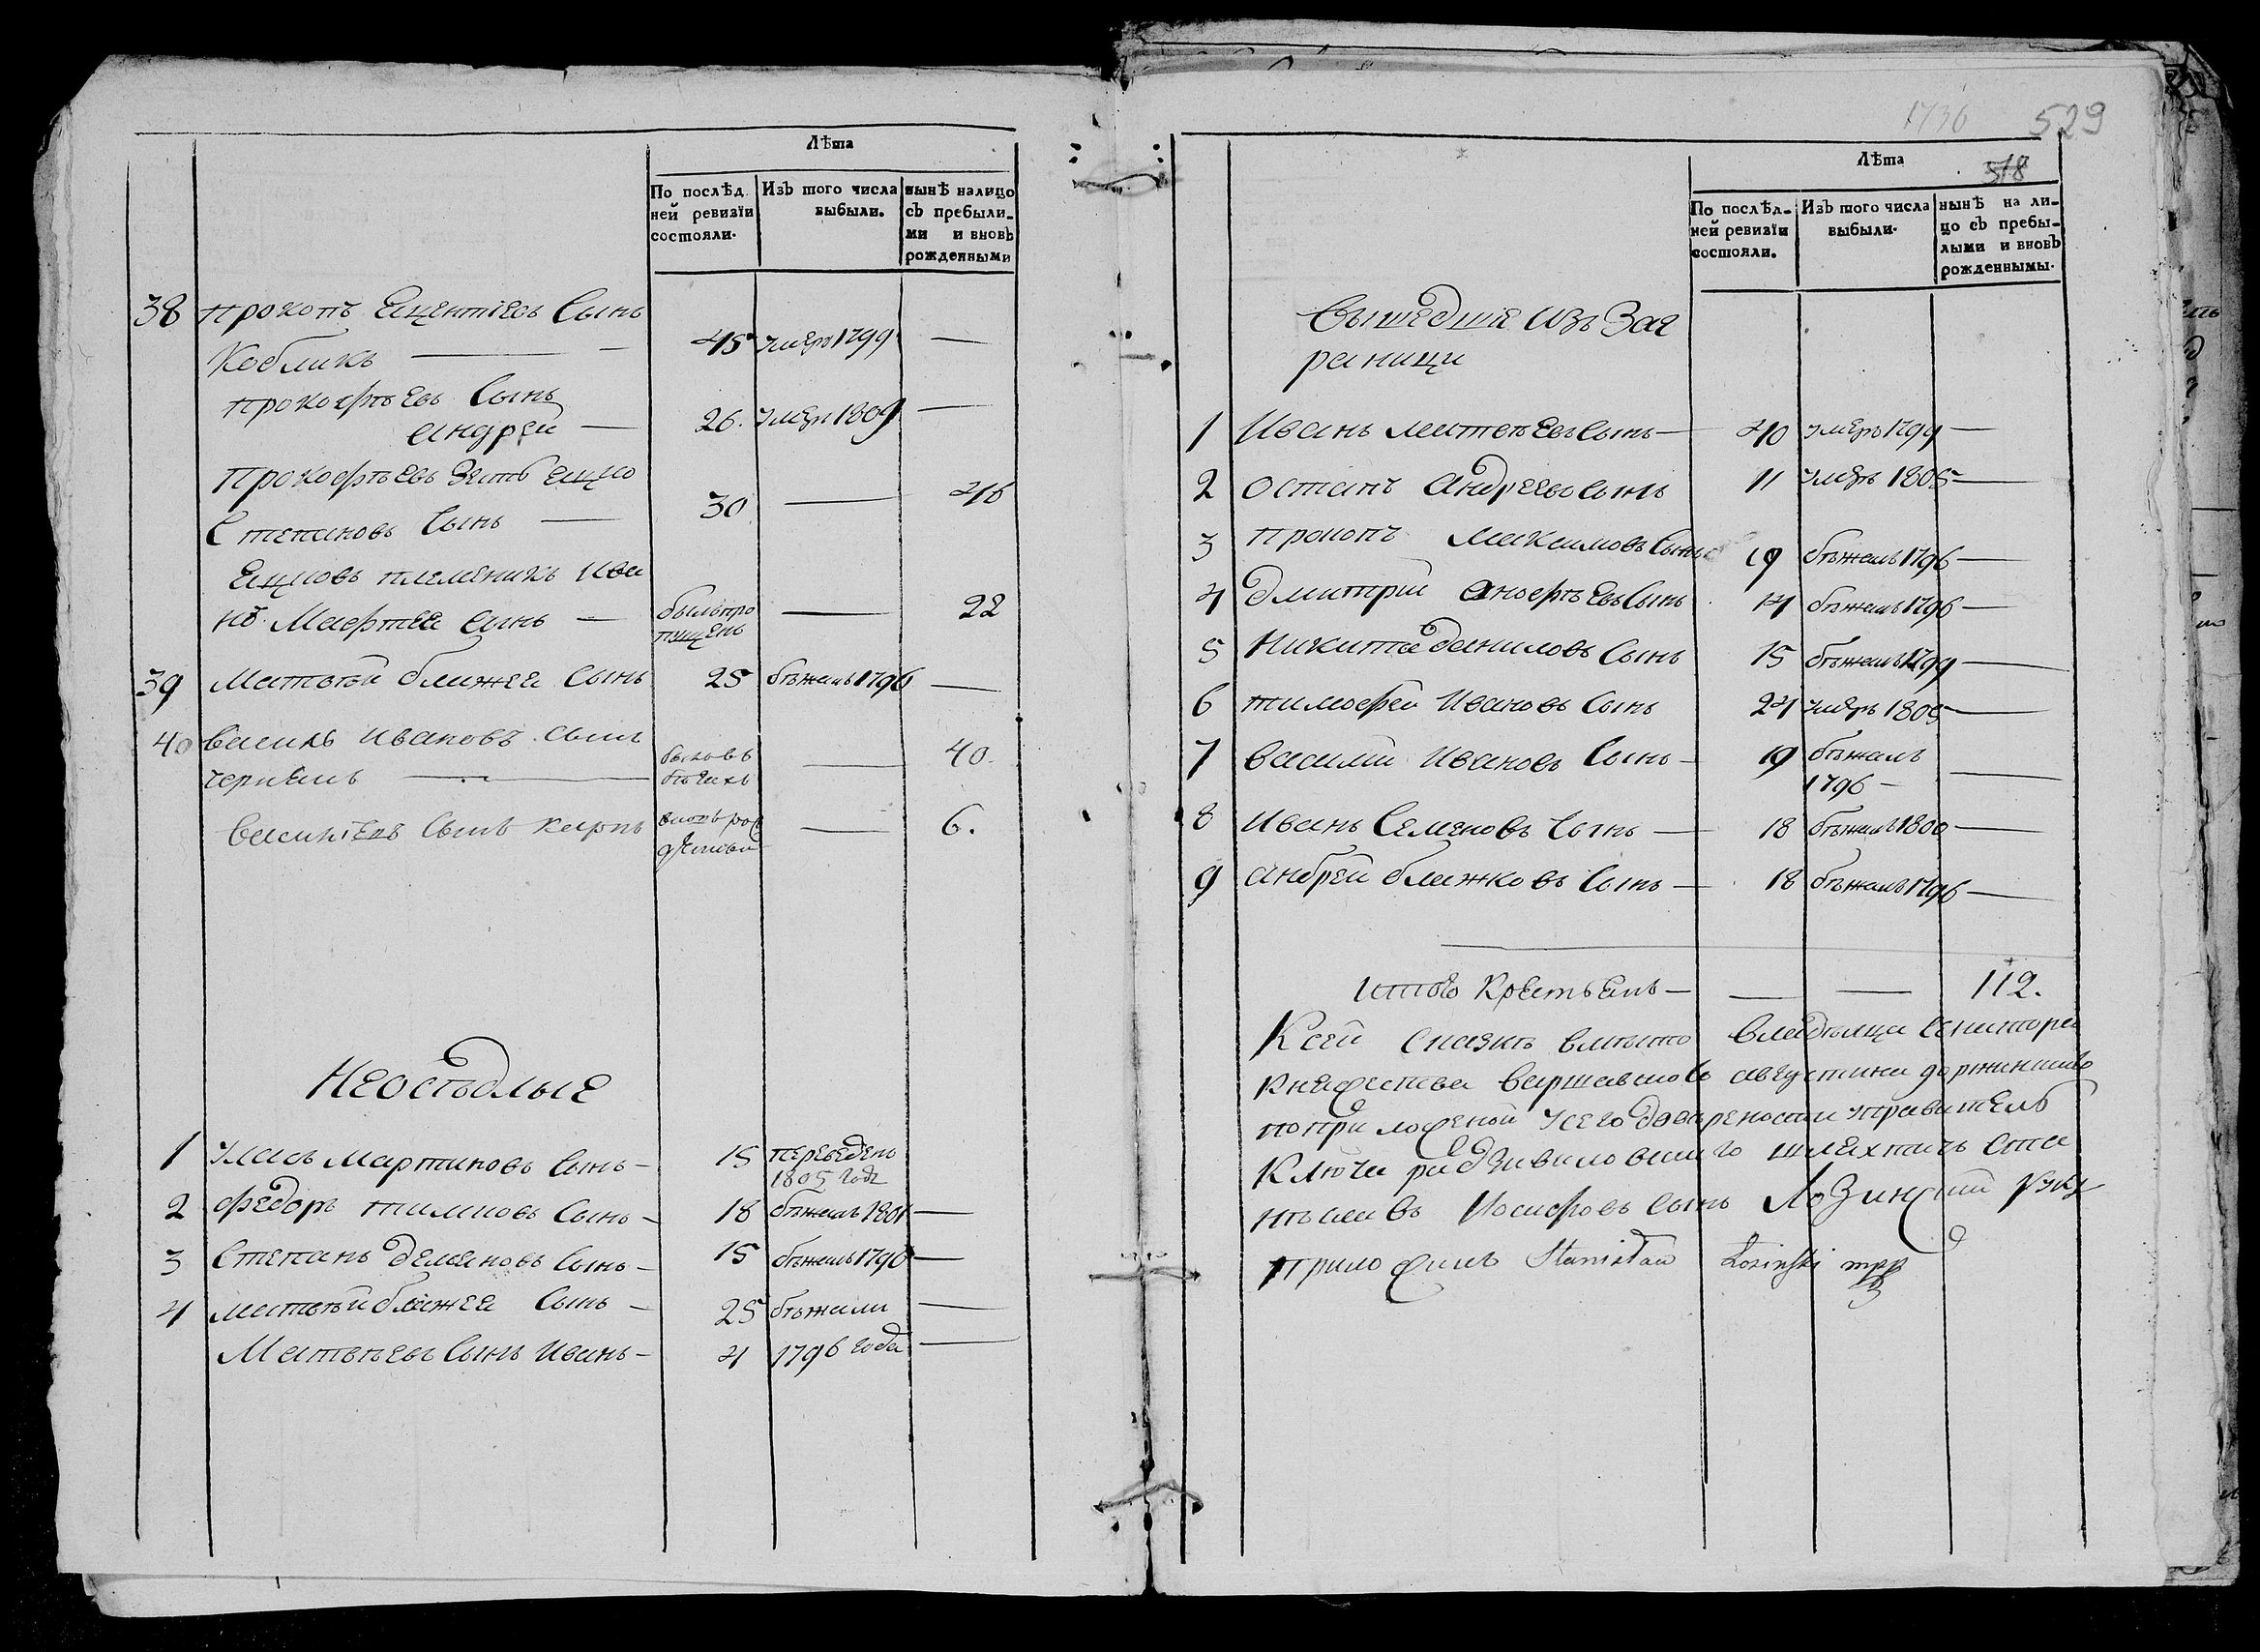 Лѣта
По послѣд
ней ревизїи
состояли.
Изъ того числа
выбыли.
нынѣ налицо
съ пребыли-
ми и вновь
рожденными
38 прокопъ Яцентіевъ Сынъ
Кобликъ — 45 умеръ 1799 —
прокофъевъ Сынъ
андрей — 26. умеръ 1809 —
Прокофъевъ Зять яцко
Степановъ Сынъ — 30 — 46
Яцковъ племеникъ Ива
нъ Мафтея сынъ — былъ про
пущенъ — 22
39 Матвѣй ближея Сынъ 25 бѣжалъ 1796 —
40 василь Ивановъ сынъ
чернЕлъ — былъ въ
бѣгахъ — 40.
Василіевъ Сынъ карпъ вновь рож
денный — 6.
Неосѣдлые
1 Уласъ Мартиновъ Сынъ — 15 переведенъ
1805 года
2 федоръ тимковъ Сынъ — 18 бѣжалъ 1801 —
3 Степанъ демяновъ Сынъ — 15 бѣжалъ 1790 —
4 матвѣй ближея Сынъ — 25 бѣжали —
Матвѣевъ Сынъ Иванъ — 4 1796 года —
1736 529
Лѣта
518
По послѣд-
ней ревизїи
состояли.
Изъ того числа
выбыли.
нынѣ на ли-
цо съ пребы-
лыми и вновь
рожденнымы.
Вышедшіе изъ Заг
раници
1 Иванъ матвѣевъ Сынъ — 40 умеръ 1799 —
2 остапъ андрЕевъ сынъ 11 умеръ 1805 —
3 прокопъ Максимовъ Сынъ 19 бѣжалъ 1796 —
4 дмитрій аноефѣевъ Сынъ 14 бѣжалъ 1796 —
5 Никита даниловъ Сынъ 15 бѣжалъ 1799 —
6 тимофей Ивановъ Сынъ 24 умеръ 1805 —
7 василій Ивановъ Сынъ — 19 бѣжалъ
1796 — —
8 Иванъ Семеновъ Сынъ — 18 бѣжалъ 1800 —
9 андрей ближковъ Сынъ — 18 бѣжалъ 1796 —
итого КрЕстьянъ — — — 112.
К сей сказкѣ вмѣсто владѣлца сенатора
княжства варшавского августина
по приложеной у сего довѣрености правитель
Ключа радзивиловского шляхтичъ Ста
ниславъ Иосифовъ сынъ Лозинский руку
приложилъ Stanisław Łozinski mpp